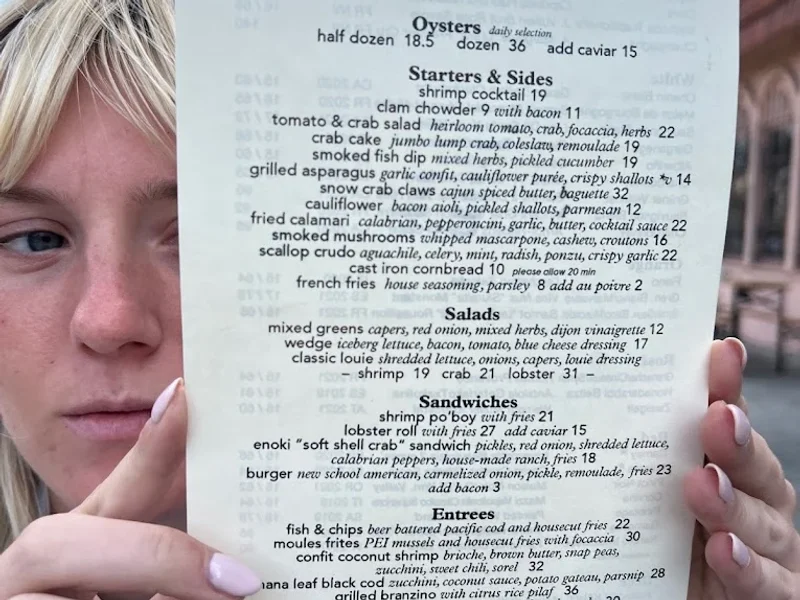 Oysters daily selection
half dozen 18.5 dozen 36 add caviar 15
Starters & Sides
shrimp cocktail 19
clam chowder 9 with bacon 11
tomato & crab salad heirloom tomato, crab, focaccia, herbs 22
crab cake jumbo lump crab, coleslaw, remoulade 19
smoked fish dip mixed herbs, pickled cucumber 19
grilled asparagus garlic confit, cauliflower purée, crispy shallots *v 14
snow crab claws cajun spiced butter, baguette 32
cauliflower bacon aioli, pickled shallots, parmesan 12
fried calamari calabrian, pepperoncini, garlic, butter, cocktail sauce 22
smoked mushrooms whipped mascarpone, cashew, croutons 16
scallop crudo aguachile, celery, mint, radish, ponzu, crispy garlic 22
cast iron cornbread 10 please allow 20 min
french fries house seasoning, parsley 8 add au poivre 2
Salads
mixed greens capers, red onion, mixed herbs, dijon vinaigrette 12
wedge iceberg lettuce, bacon, tomato, blue cheese dressing 17
classic louie shredded lettuce, onions, capers, louie dressing
– shrimp 19 crab 21 lobster 31 –
Sandwiches
shrimp po'boy with fries 21
lobster roll with fries 27 add caviar 15
enoki "soft shell crab" sandwich pickles, red onion, shredded lettuce,
calabrian peppers, house-made ranch, fries 18
burger new school american, carmelized onion, pickle, remoulade, fries 23
add bacon 3
Entrees
fish & chips beer battered pacific cod and housecut fries 22
moules frites PEI mussels and housecut fries with focaccia 30
confit coconut shrimp brioche, brown butter, snap peas,
zucchini, sweet chili, sorel 32
leaf black cod zucchini, coconut sauce, potato gateau, parsnip 28
grilled branzino with citrus rice pilaf 36